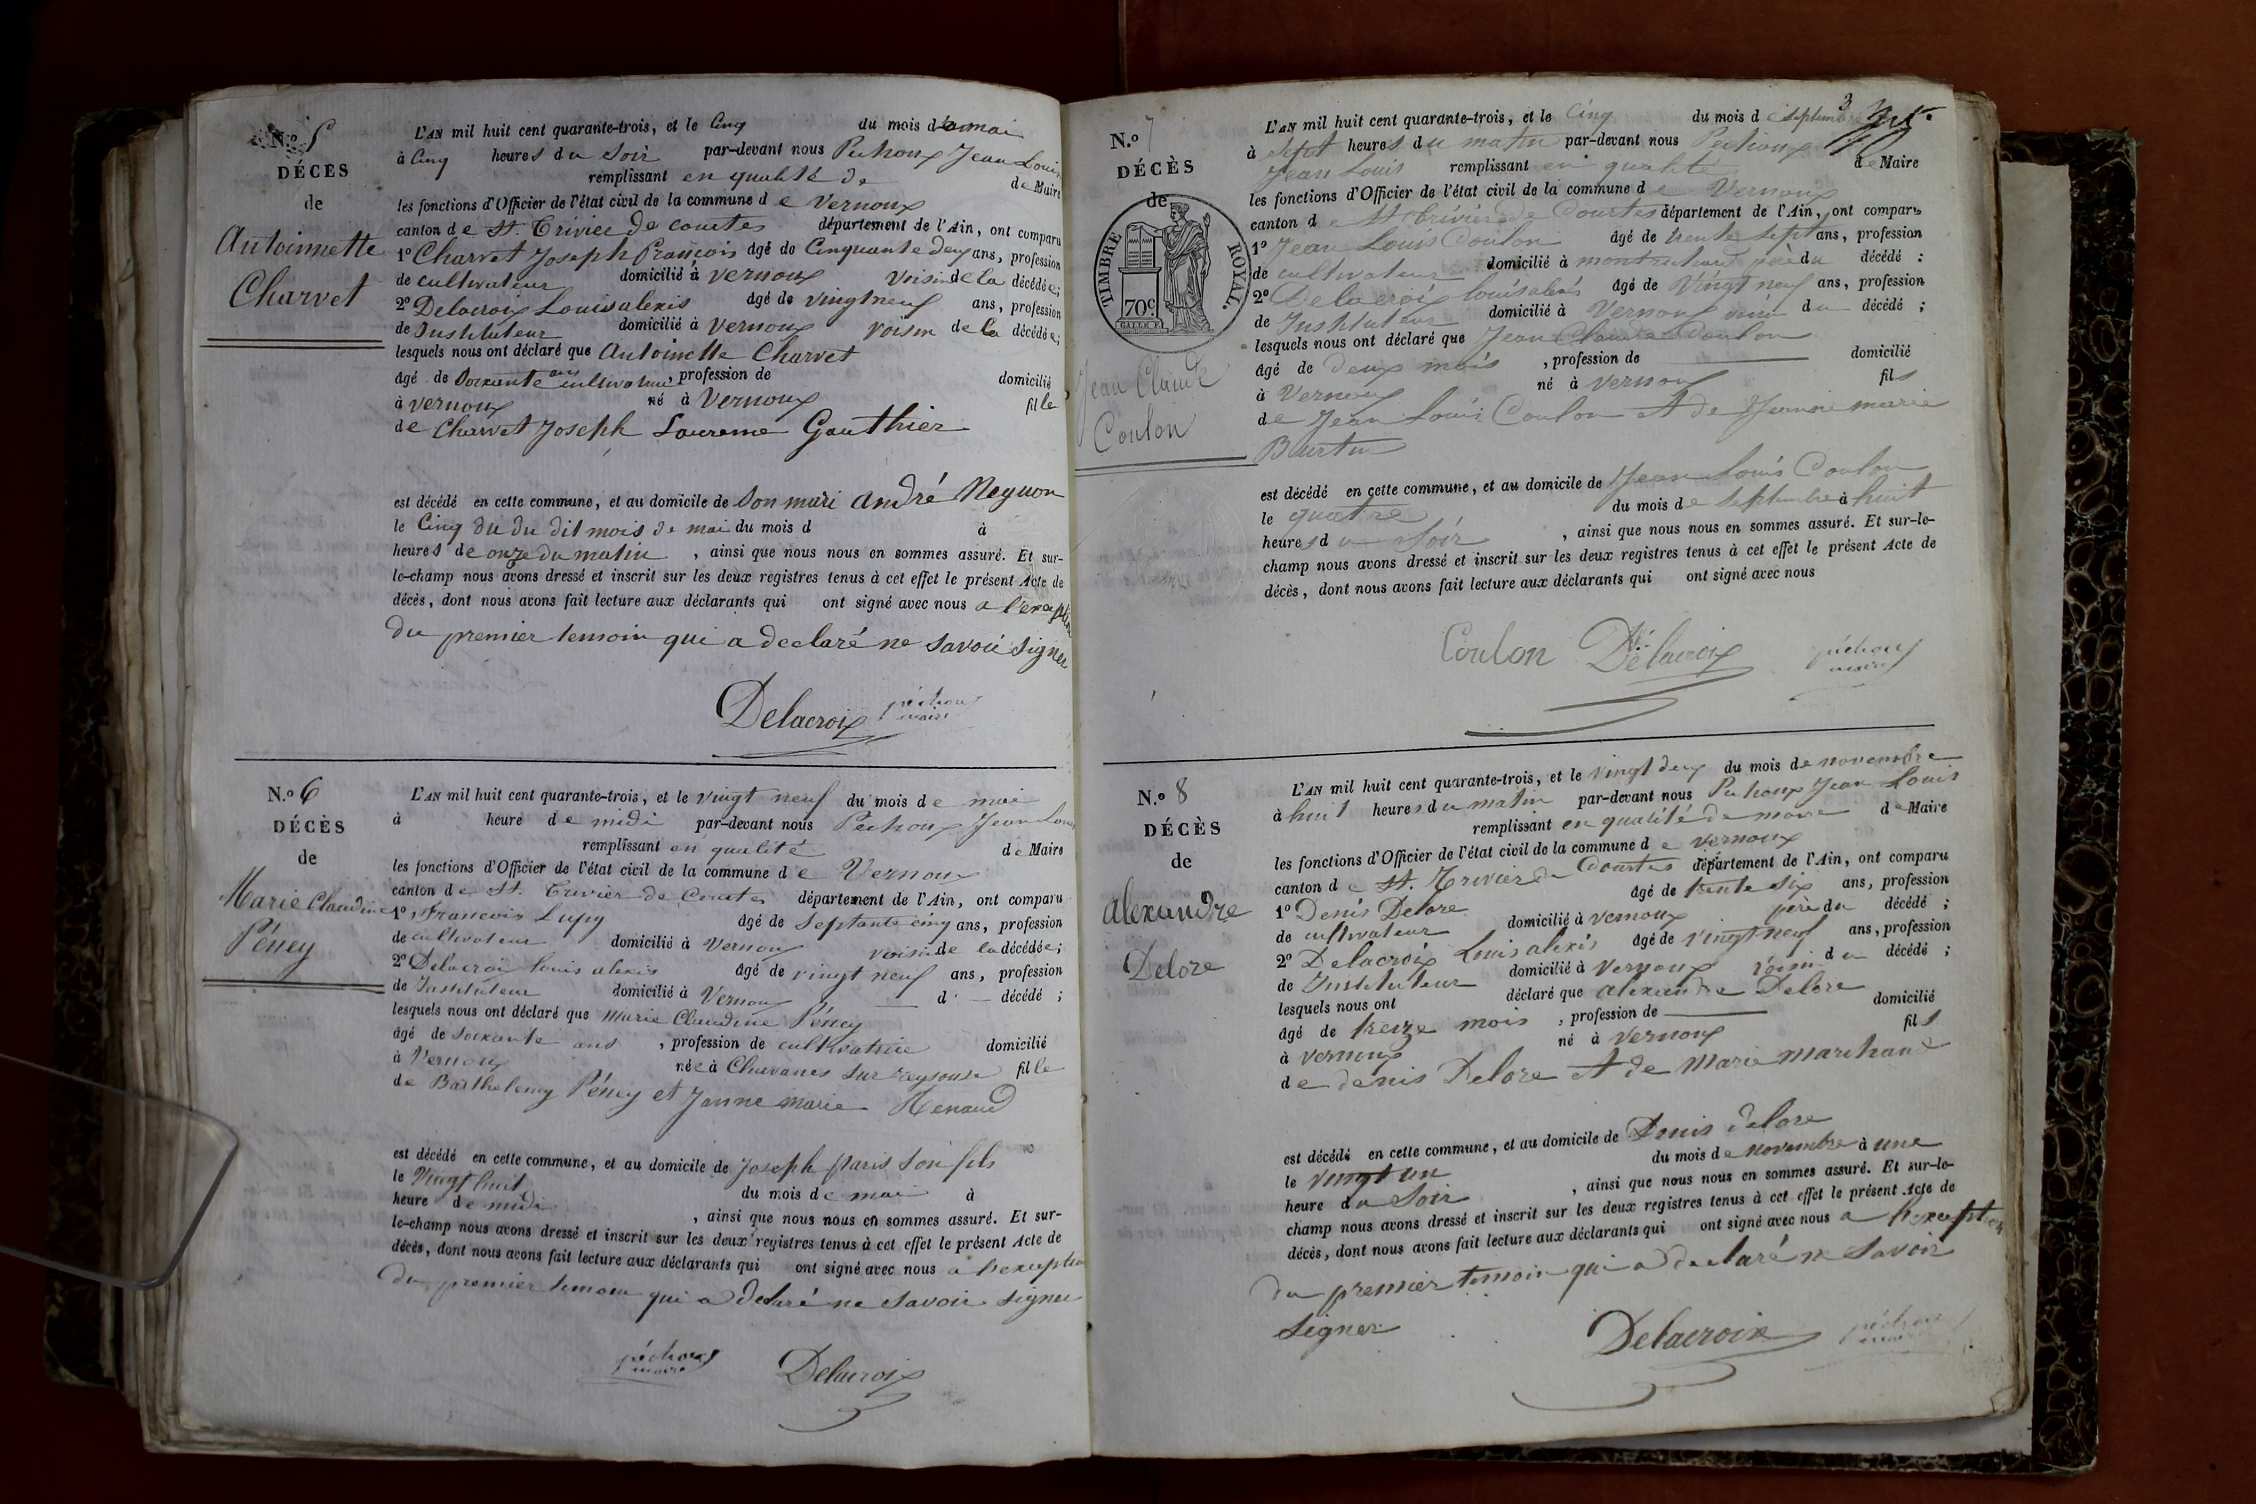 N.º 5
DÉCÈS
de
Antoinette
Charvet
L'AN mil huit cent quarante-trois, et le Cinq du mois de mai
à Cinq heures du Soir par-devant nous Pechoux Jean Louis
remplissant en qualité de de Maire
les fonctions d'Officier de l'état civil de la commune de Vernoux
canton de St. Trivier de Courtes département de l'Ain, ont comparu
1º Charvet Joseph François âgé de Cinquante deux ans, profession
de cultivateur domicilié à Vernoux Voisin de la décédée;
2º Delacroix Louis alexis âgé de vingt neuf ans, profession
de Instituteur domicilié à Vernoux voisin de la décédée;
lesquels nous ont déclaré que Antoinette Charvet
âgé de Soixante ans cultivatrice, profession de domicilié
à Vernoux né à Vernoux fille
de Charvet Joseph Laurence Gauthier
est décédé en cette commune, et au domicile de Son mari André Neynon
le Cinq du du dit mois de mai du mois d à
heures de onze du matin, ainsi que nous nous en sommes assuré. Et sur-
le-champ nous avons dressé et inscrit sur les deux registres tenus à cet effet le présent Acte de
décès, dont nous avons fait lecture aux déclarants qui ont signé avec nous a l'exception
du premier temoin qui a declaré ne savoir signer
Delacroix péchoux
maire
N.º 6
DÉCÈS
de
Marie Claudine
Péney
L'AN mil huit cent quarante-trois, et le vingt neuf du mois de mai
à heure de midi par-devant nous Pechoux Jean Louis
remplissant en qualité de Maire
les fonctions d'Officier de l'état civil de la commune de Vernoux
canton de St. Trivier de Courtes département de l'Ain, ont comparu
1º François Lupy âgé de Septante cinq ans, profession
de cultivateur domicilié à Vernoux voisin de la décédée;
2º Delacroix louis alexis âgé de vingt neuf ans, profession
de Instituteur domicilié à Vernoux d décédé;
lesquels nous ont déclaré que Marie Claudine Péney
âgé de soixante ans, profession de cultivatrice domicilié
à Vernoux née à Chavanes Sur reysouse fille
de Barthelemy Péney et Janne marie Renaud
est décédé en cette commune, et au domicile de Joseph paris Son fils
le Vingt huit du mois de mai à
heure de midi, ainsi que nous nous en sommes assuré. Et sur-
le-champ nous avons dressé et inscrit sur les deux registres tenus à cet effet le présent Acte de
décès, dont nous avons fait lecture aux déclarants qui ont signé avec nous a l'exception
du premier temoin qui a declaré ne savoir signer
péchoux
maire Delacroix
3
N.º 7
DÉCÈS
de
TIMBRE ROYAL.
70c
Jean Claude
Coulon
L'AN mil huit cent quarante-trois, et le Cinq du mois de Septembre
à Sept heures du matin par-devant nous Pechoux
Jean Louis remplissant en qualité de Maire
les fonctions d'Officier de l'état civil de la commune de Vernoux
canton de St Trivier de Courtes département de l'Ain, ont comparu
1º Jean Louis Coulon âgé de trente Sept ans, profession
de cultivateur domicilié à père du décédé;
2º Delacroix louis alexis âgé de Vingt neuf ans, profession
de Instituteur domicilié à Vernoux voisin du décédé;
lesquels nous ont déclaré que Jean Claude Coulon
âgé de deux mois, profession de domicilié
à Vernoux né à Vernoux fils
de Jean Louis Coulon et de Jeanne marie
Burtin
est décédé en cette commune, et au domicile de Jean Louis Coulon
le quatre du mois de Septembre à huit
heures du Soir, ainsi que nous nous en sommes assuré. Et sur-le-
champ nous avons dressé et inscrit sur les deux registres tenus à cet effet le présent Acte de
décès, dont nous avons fait lecture aux déclarants qui ont signé avec nous
Coulon Delacroix péchoux
maire
N.º 8
DÉCÈS
de
alexandre
Delore
L'AN mil huit cent quarante-trois, et le vingt deux du mois de novembre
à huit heures du matin par-devant nous Pechoux Jean Louis
remplissant en qualité de maire de Maire
les fonctions d'Officier de l'état civil de la commune de Vernoux
canton de St. Trivier de Courtes département de l'Ain, ont comparu
1º Denis Delore âgé de trente six ans, profession
de cultivateur domicilié à Vernoux père du décédé;
2º Delacroix Louis alexis âgé de vingt neuf ans, profession
de Instituteur domicilié à Vernoux voisin du décédé;
lesquels nous ont déclaré que alexandre Delore
âgé de treize mois, profession de domicilié
à Vernoux né à Vernoux fils
de denis Delore et de Marie marchand
est décédé en cette commune, et au domicile de Denis delore
le vingt un du mois de novembre à une
heure du Soir, ainsi que nous nous en sommes assuré. Et sur-le-
champ nous avons dressé et inscrit sur les deux registres tenus à cet effet le présent Acte de
décès, dont nous avons fait lecture aux déclarants qui ont signé avec nous a l'exception
du premier temoin qui a declaré ne savoir
signer
Delacroix péchoux
maire